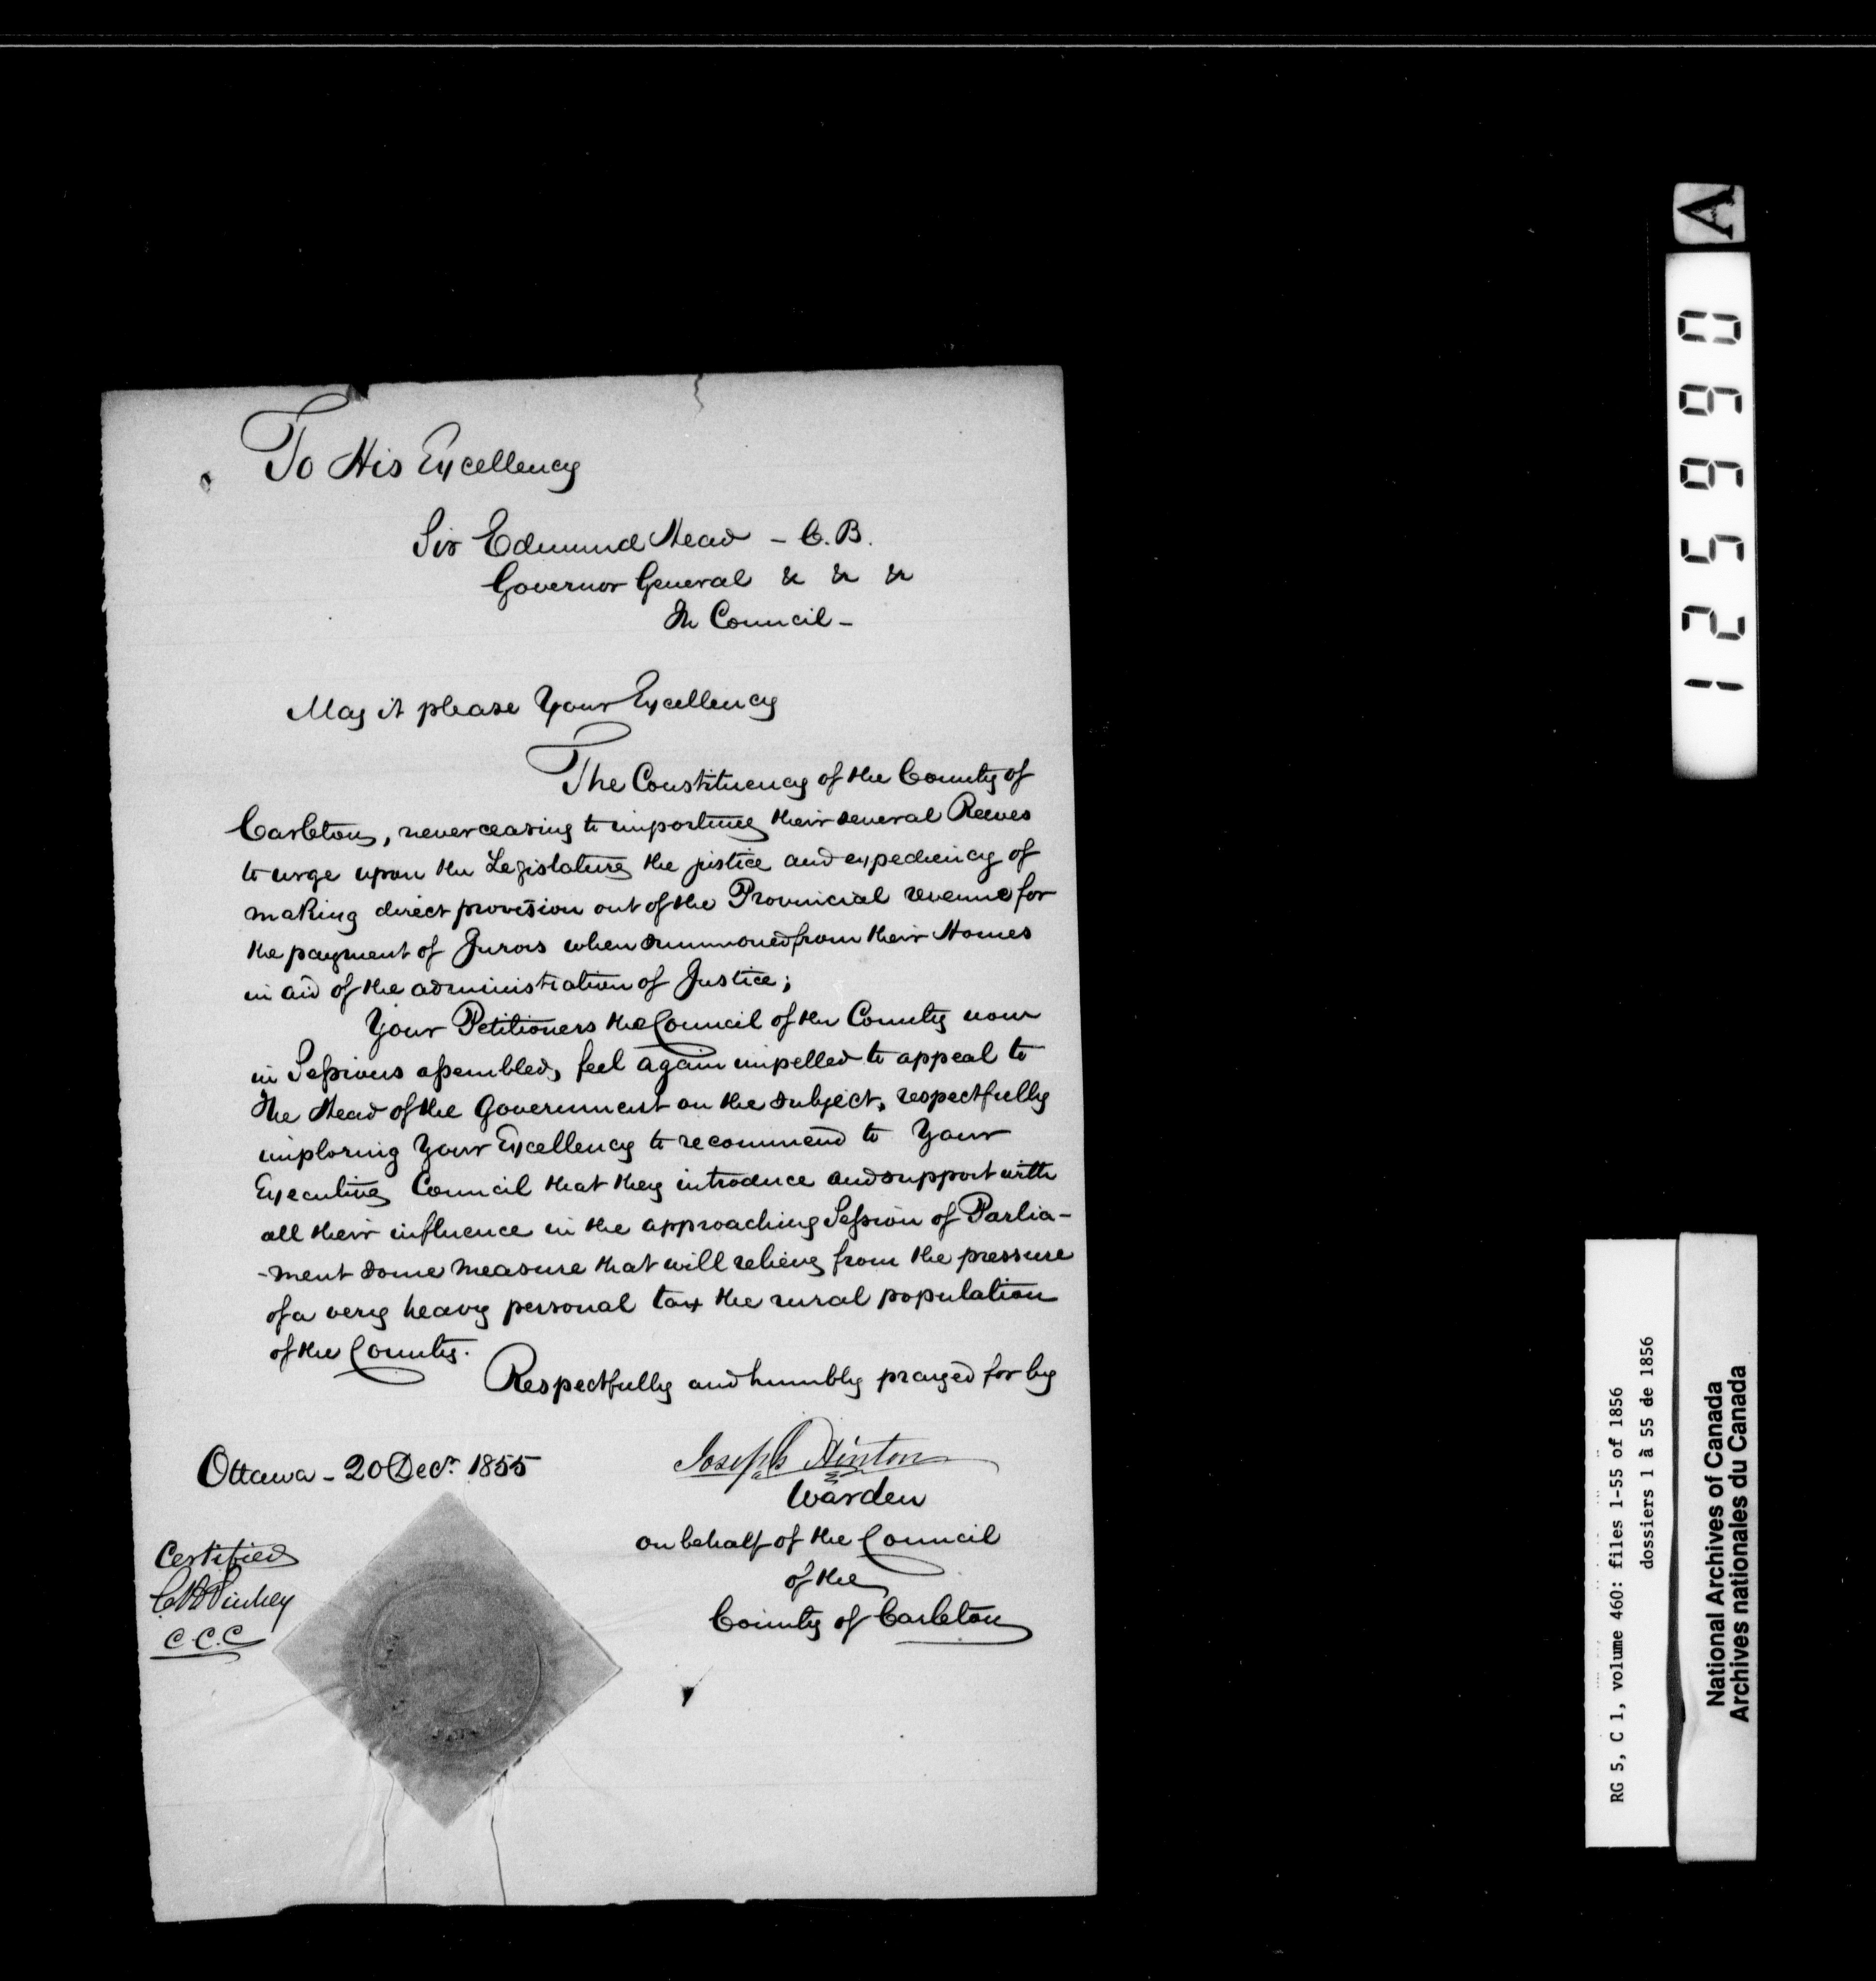 To His Excellency
Sir Edmund Head - C.B.
Governor General & & &
In Council -
May it please Your Excellency
The Constituency of the County of
Carleton, never ceasing to importune their several Reeves
to urge upon the Legislature the justice and expediency of
making direct provision out of the Provincial revenue for
the payment of Jurors when summoned from their Homes
in aid of the administration of Justice;
Your Petitioners the Council of the County now
in Sessions assembled, feel again impelled to appeal to
the Head of the Government on the subject, respectfully
imploring Your Excellency to recommend to Your
Executive Council that they introduce and support with
all their influence in the approaching Session of Parlia-
-ment some measure that will relieve from the pressure
of a very heavy personal tax the rural population
of the County.
Respectfully and humbly prayed for by
Ottawa - 20 Decr. 1855
Joseph Hinton
Warden
on behalf of the Council
of the
County of Carleton
Certified
C H Pinhey
C.C.C
A
125660
RG 5, C 1, volume 460: files 1-55 of 1856
dossiers 1 à 55 de 1856
National Archives of Canada
Archives nationales du Canada